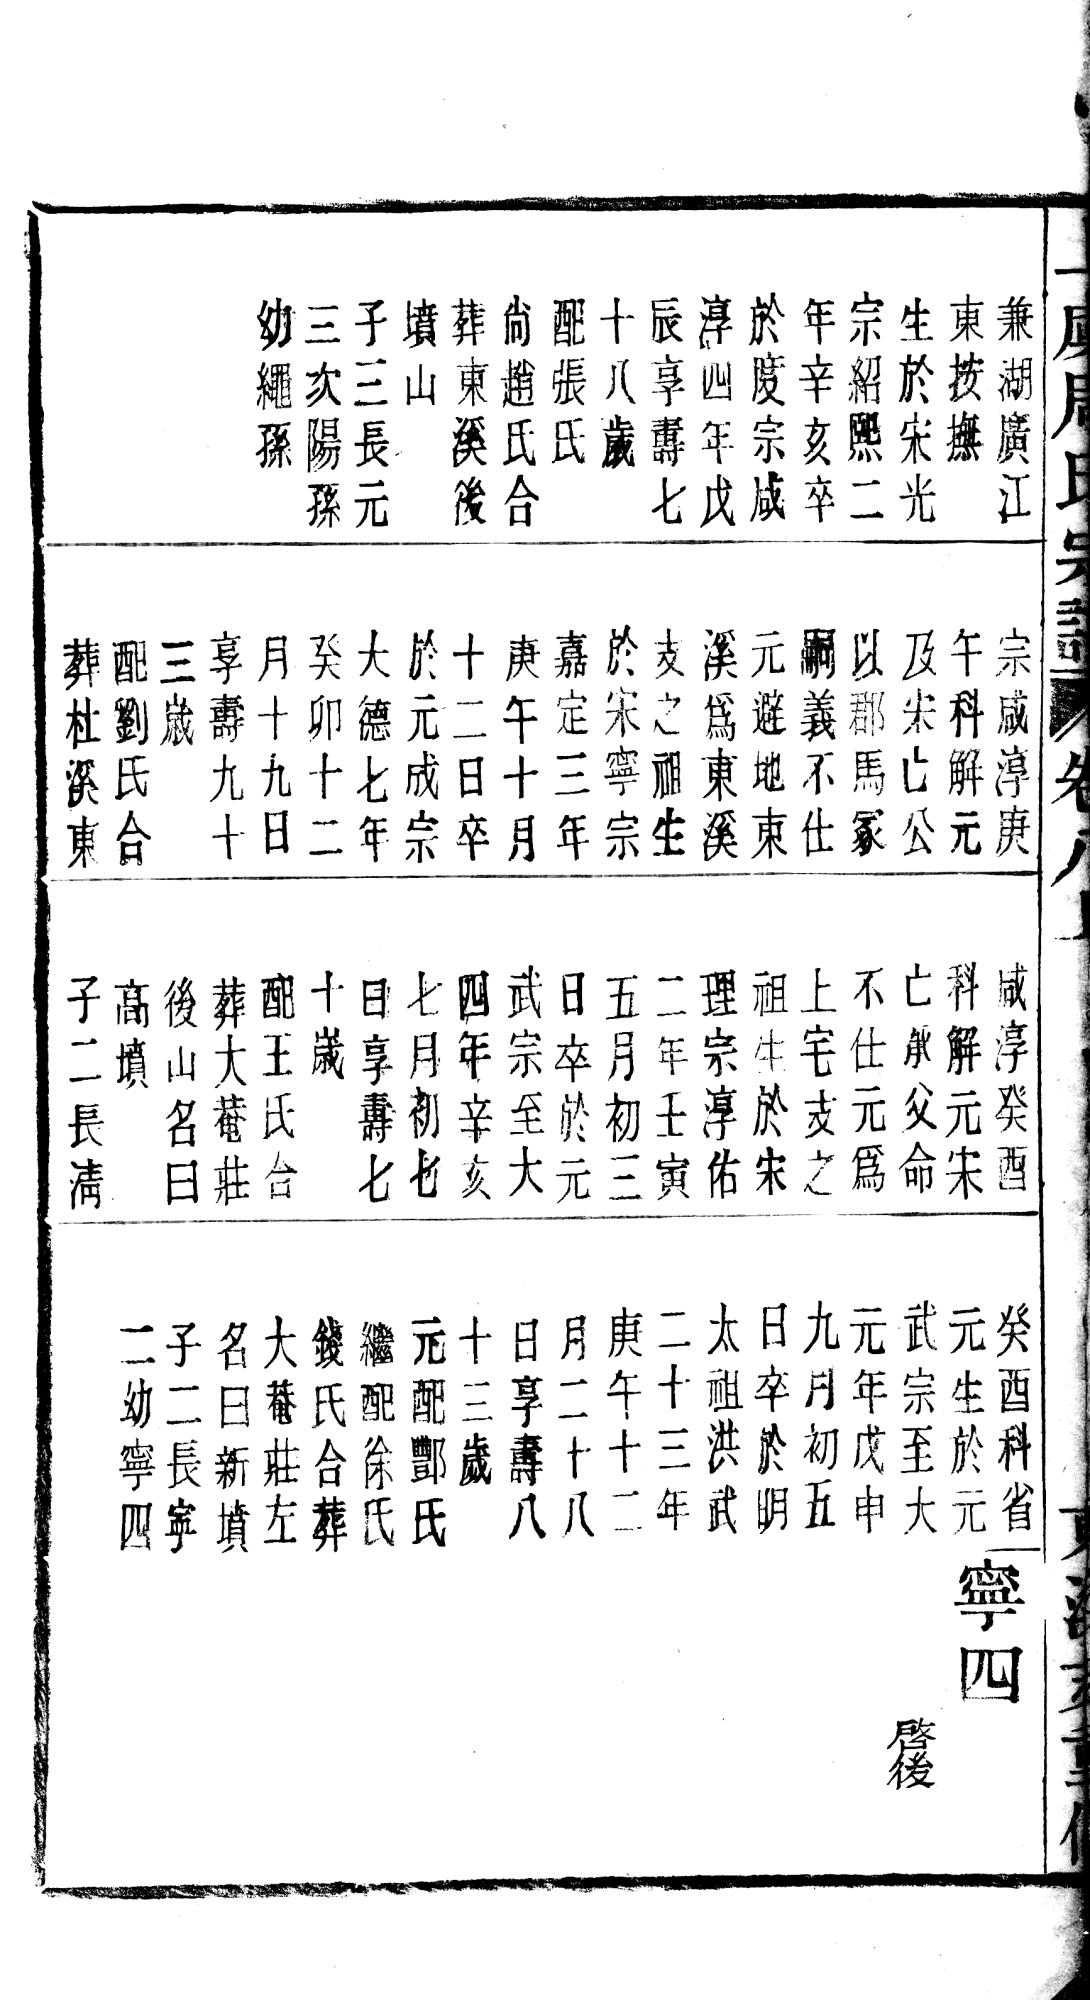 兼湖廣江
東按撫
生於宋光
宗紹熙二
年辛亥卒
於度宗咸
淳四年戊
辰享壽七
十八歲
配張氏
尚趙氏合
葬東溪後
墳山
子三長元
三次陽孫
幼繩孫
宗咸淳庚
午科解元
及宋亡公
以郡馬冢
嗣義不仕
元避地東
溪爲東溪
支之祖生
於宋寧宗
嘉定三年
庚午十月
十二日卒
於元成宗
大德七年
癸卯十二
月十九日
享壽九十
三歲
配劉氏合
葬杜溪東
咸淳癸酉
科解元宋
亡承父命
不仕元爲
上宅支之
祖生於宋
理宗淳佑
二年壬寅
五月初三
日卒於元
武宗至大
四年辛亥
七月初七
日享壽七
十歲
配王氏合
葬大菴莊
後山名曰
高墳
子二長清
癸酉科省
元生於元
武宗至大
元年戊申
九月初五
日卒於明
太祖洪武
二十三年
庚午十二
月二十八
日享壽八
十三歲
元配酆氏
繼配徐氏
錢氏合葬
大菴莊左
名曰新墳
子二長寧
二幼寧四
寧四
啓後